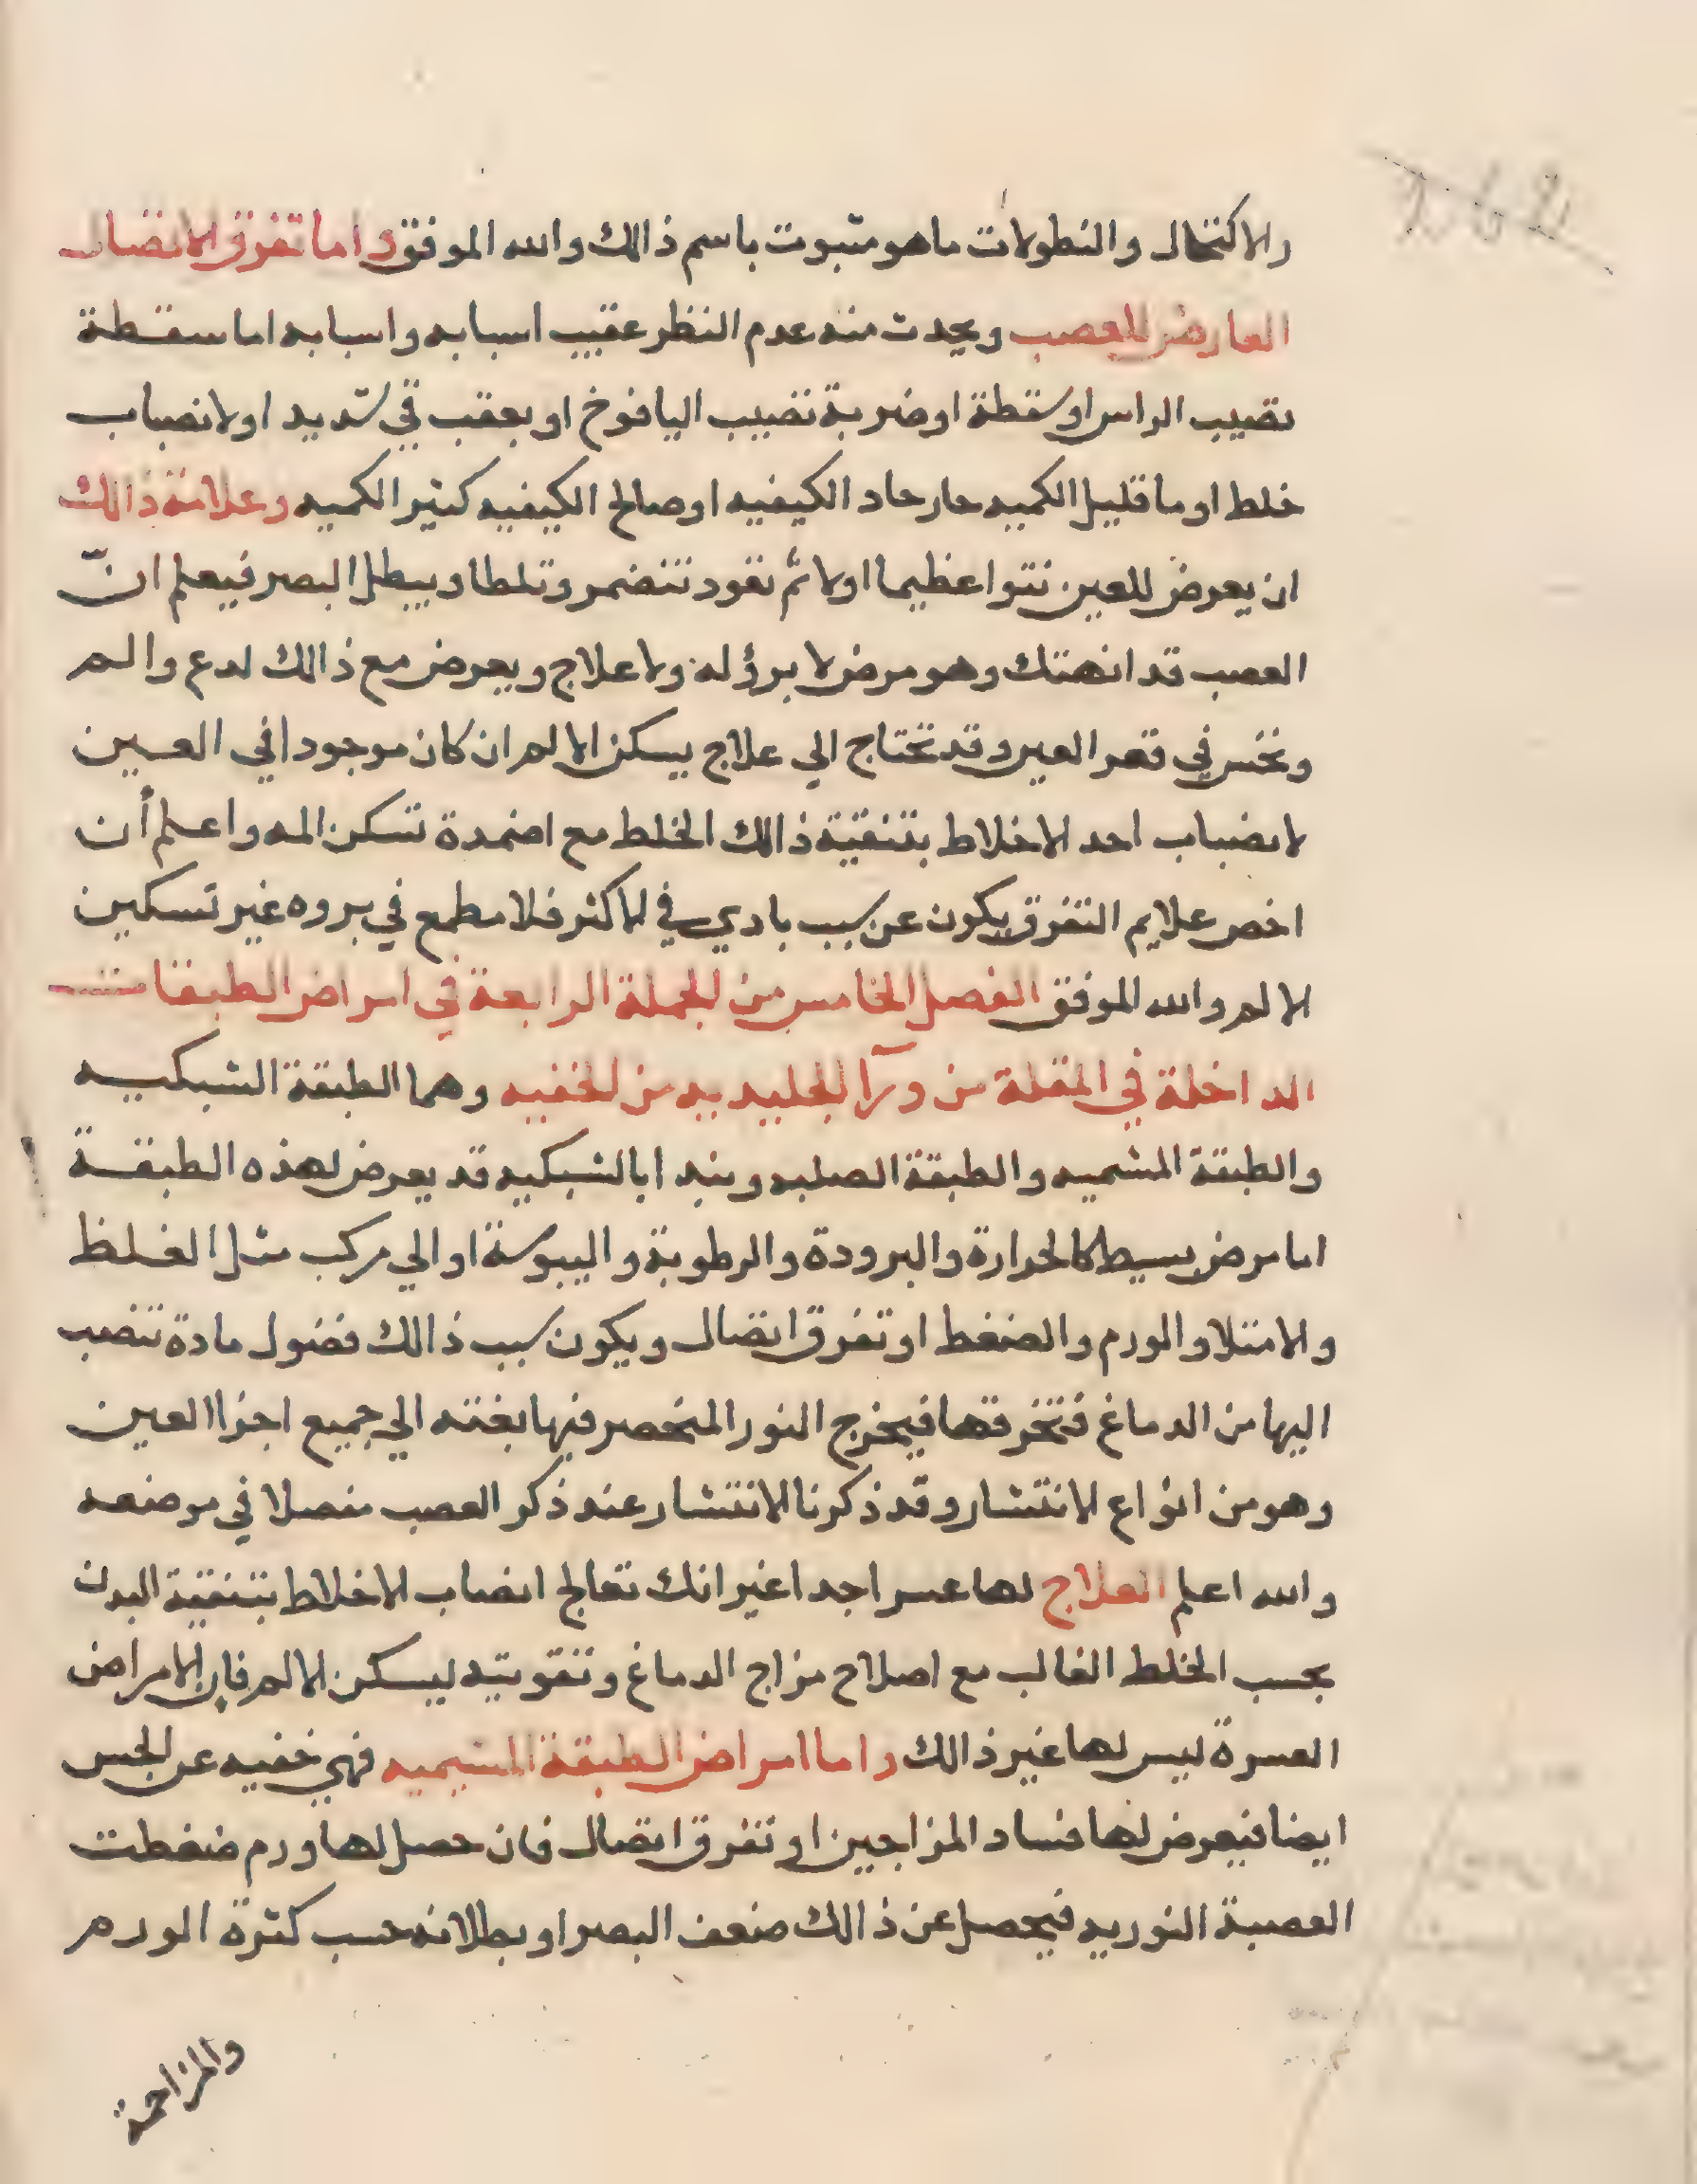 والاكتحال والنطولات ماهو مثبوت باسم ذالك والله الموفق واما تفرق الاتصال
العارض للعصب ويحدث منه عدم النظر عقيب اسبابه واسبابه اما سقطة
تصيب الراس او سقطة او ضربة تصيب اليافوخ او بعقب قي شديد او لانصباب
خلط اوما قليل الكميه حار حاد الكيفيه او صالح الكيفيه كثير الكميه وعلامة ذالك
ان يعرض للعين نتوا عظيما اولا ثم تعود تتضمر وتلطا ويبطل البصر فيعلم انّ
العصب قد انهتك وهو مرض لا برؤ له ولا علاج ويعرض مع ذالك لدع والم
ونخس في قعر العين وقد تحتاج الي علاج يسكن الالم ان كان موجودا في العين
لانصباب احد الاخلاط بتنقية ذالك الخلط مع اضمدة تسكن المه واعلم أن
اخص علايم التفرق يكون عن سبب بادي في الاكثر فلا مطمع في بروه غير تسكين
الالم والله الموفق الفصل الخامس من الجملة الرابعة في امراض الطبقات
الداخلة في المقلة من ورآ الجليديه من الخفيه وهما الطبقة الشبكيه
والطبقة المشميه والطبقة الصلبه ونبدا بالشبكيه قد يعرض لهذه الطبقة
اما مرض بسيط كالحرارة والبرودة والرطوبة واليبوسة او الي مركب مثل الغلظ
والامتلا والورم والضغط او تفرق اتصال ويكون سبب ذالك فضول مادة تنصب
اليها من الدماغ فتخرقها فيخرج النور المنحصر فيها بغتة الي جميع اجزا العين
وهو من انواع الانتشار وقد ذكرنا الانتشار عند ذكر العصب مفصلا في موضعه
والله اعلم العلاج لها عسرا جدا غير انك تعالج انصباب الاخلاط بتنقية البدن
بحسب الخلط الغالب مع اصلاح مزاج الدماغ وتقويته ليسكن الالم فان الامراض
العسرة ليس لها غير ذالك واما امراض الطبقة المشيميه فهي خفيه عن الحس
ايضا فيعرض لها فساد المزاجين او تفرق اتصال فان حصل لها ورم ضغطت
العصبة النوريه فيحصل عن ذالك ضعف البصر او بطلانه حسب كثرة الورم
والمزاحمة